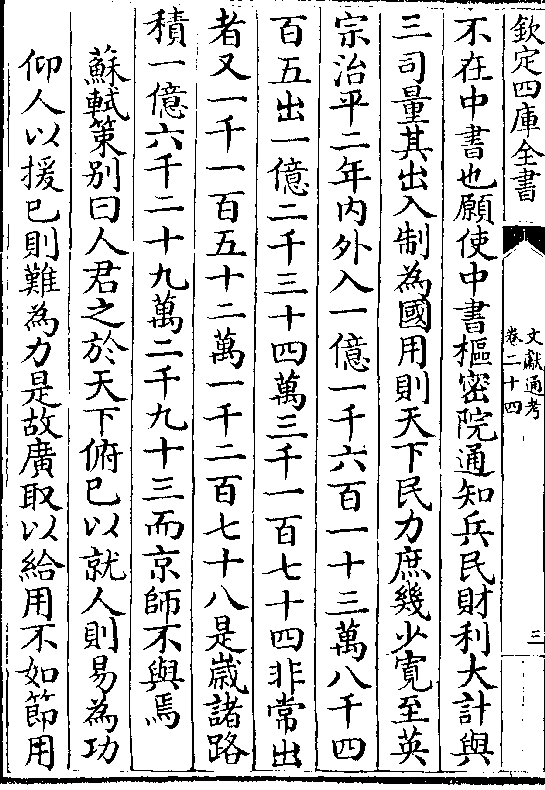 欽定四庫全書
文獻通考
卷二十四
三
不在中書也願使中書樞密院通知兵民財利大計與
三司量其出入制為國用則天下民力庶幾少寛至英
宗治平二年内外入一億一千六百一十三萬八千四
百五出一億二千三十四萬三千一百七十四非常出
者又一千一百五十二萬一千二百七十八是嵗諸路
積一億六千二十九萬二千九十三而京師不與焉
蘇軾策别曰人君之於天下俯已以就人則易為功
仰人以援已則難為力是故廣取以給用不如節用